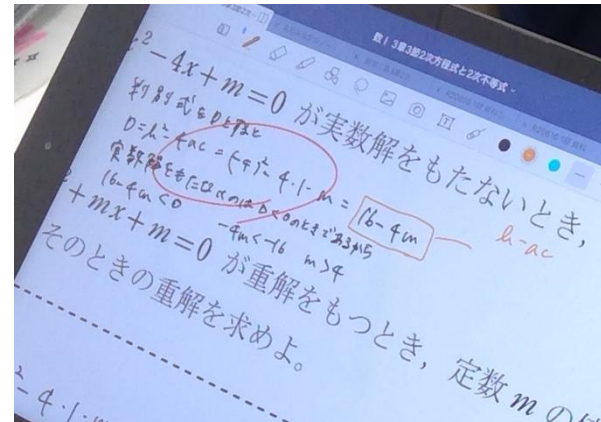 数Ⅰ 3章3節2次方程式と2次不等式
² - 4x + m = 0 が実数解をもたないとき,
判別式をDとすると
D = b² - 4ac = (-4)² - 4・1・m = 16 - 4m
b - ac
実数解をもたないのは D < 0 のときであるから
16 - 4m < 0
-4m < -16 m > 4
+ mx + m = 0 が重解をもつとき, 定数 m の
そのときの重解を求めよ。
² - 4・1・m